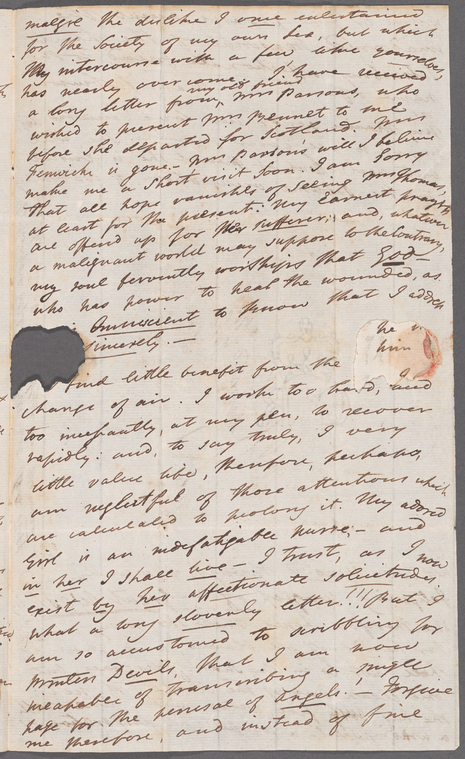 malgré the dislike I once entertained
for the Society of my own Sex, but which
my intercourse with a few like yourselves,
has nearly overcome. I have received
my old friend
a long letter from, Mrs Parsons, who
wished to present Mrs Bennet to me
before She departed for Scotland. Mrs
Fenwicke is gone. Mrs Parsons will I believe
make me a Short visit Soon. I am Sorry
That all hope vanishes of Seeing Mrs Thomas,
at least for the present. My Earnest prayers
are offered up for the sufferer; and, whatever
a malignant world may suppose to the Contrary,
my soul fervently worships that God
who has power to heal the wounded, as
Omniscient to know that I
Sincerely.—
find little benefit from the
change of air. I work too hard, and
too incessantly, at my pen, to recover
rapidly: and, to say truly, I very
little value life, therefore, perhaps,
am neglectful of those attentions which
are calculated to prolong it. My adored
Girl is an indefatigable nurse,— and
in her I shall live— I trust, as I now
exist by her affectionate solicitude.
what a long slovenly letter!!! But I
am so accustomed to scribbling for
Printers Devils, that I am now
incapable of transcribing a single
page for the perusal of Angels!— Forgive
me therefore, and instead of fine